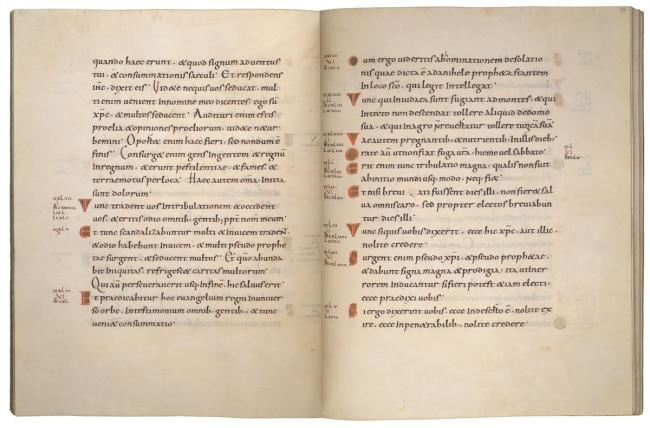 quando haec erunt, & quod signum aduentus
tui, & consummationis saeculi. Et respondens
ihc, dixit eis. Uid&e nequis uos seducat, mul
ti enim uenient Innomine meo dicentes, ego sū
xpc, & multos seducent. Audituri enim estis
proelia & opiniones proeliorum, uid&e ne tur
bemini. Oport& enim haec fieri, sed nondum ē
finis. Consurg& enim gens Ingentem & regnū
Inregnum, & erunt pestilentiae, & fames, &
terraemotus perloca. Haec autem oma, Initia
sunt dolorum.
Tunc tradent uos Intribulationem & occident
uos, & eritis odio omnib; gentib; ppt nomen meum
Et tunc scandalizabuntur multi & Inuicem tradent,
& odio habebunt Inuicem, & multi pseudo prophe
tae surgent, & seducent multos. Et qūo abunda
bit Iniquitas, refrigesc& caritas multorum.
Qui aū perseuerauerit usq; Infinē, hic saluus erit.
Et praedicabitur hoc euangelium regni Inuniuer
so orbe, Intestimonium omnib; gentib; & tunc
ueni& consummatio.
Cum ergo uideritis abhominationem desolatio
nis quae dicta ē adanihele proph&a stantem
Inloco scō, qui legit Intellegat.
Tunc qui Iniudaea sunt fugiant admontes, & qui
Intecto non descendat tollere aliquid dedomo
sua, & qui Inagro n̄ reuertatur tollere tunicā suā
Uae autem pregnantib; & nutrientib; Inillis dieb;
Orate aū utnonfiat fuga urā, hieme uel sabbato.
Erit enim tunc tribulatio magna, qualis nonfuit
abinitio mundi usq; modo, neq; fi&.
Et nisi breuiati fuissent dies illi, non fier& sal
ua omnis caro, sed propter electos breuiabun
tur dies illi.
Tunc siquis uobis dixerit, ecce hic xpc, aut illic,
nolite credere.
Surgent enim pseudo xpi, & pseudo proph&ae,
& dabunt signa magna & prodigia, ita utInerr
rorem Inducantur sifieri potest & iam electi.
ecce praedixi uobis.
Si ergo dixerint uobis, ecce Indeserto ē, nolite ex
ire, ecce Inpen&rabilib; nolite credere.